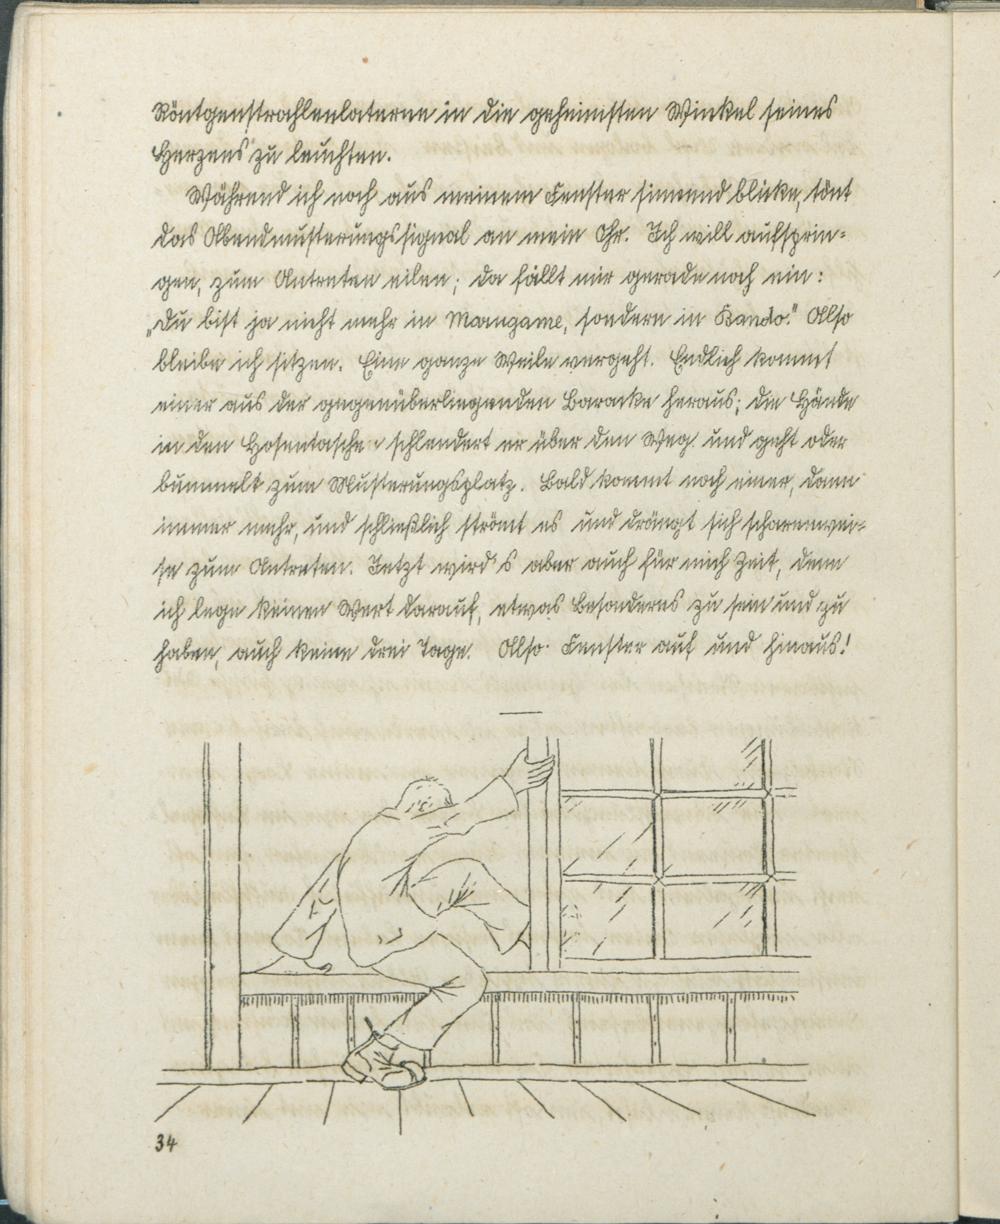 Röntgenstrahlenlaterne in die geheimsten Winkel seines
Herzens zu leuchten.
Während ich noch aus meinem Fenster sinnend blicke, tönt
das Abendmusterungssignal an mein Ohr. Ich will aufsprin-
gen, zum Antreten eilen; da fällt mir gerade noch ein:
„Du bist ja nicht mehr in Marugame, sondern in Bando." Also
bleibe ich sitzen. Eine ganze Weile vergeht. Endlich kommt
einer aus der gegenüberliegenden Baracke heraus; die Hände
in den Hosentaschen schlendert er über den Weg und geht oder
bummelt zum Musterungsplatz. Bald kommt noch einer, dann
immer mehr, und schließlich strömt es und drängt sich scharenwei-
se zum Antreten. Jetzt wird's aber auch für mich Zeit, denn
ich lege keinen Wert darauf, etwas Besonderes zu sein und zu
haben, auch keine drei Tage. Also Fenster auf und hinaus!
34